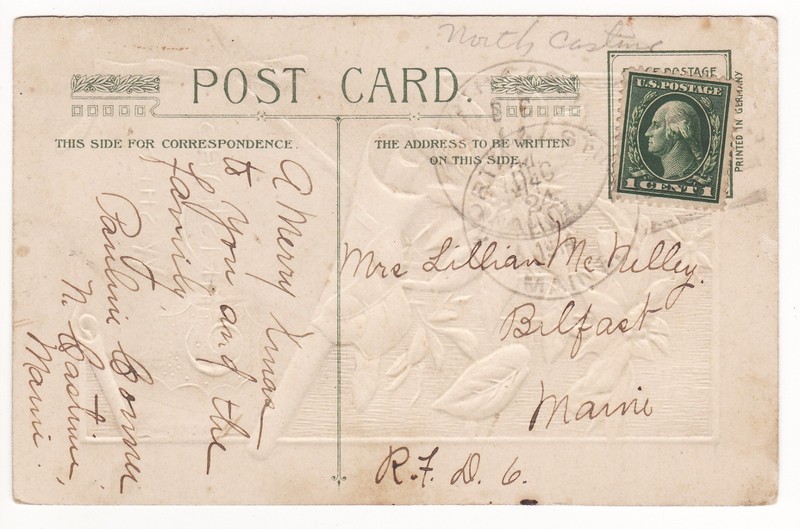 North Castine
POST CARD.
THIS SIDE FOR CORRESPONDENCE.
THE ADDRESS TO BE WRITTEN
ON THIS SIDE
POSTAGE
U.S. POSTAGE
1 CENT 1
PRINTED IN GERMANY
MAIN
A Merry Xmas
to You and the
Family.
Pauline Conner
N. Castine,
Maine.
Mrs Lillian Mc Nelley.
Belfast
Maine
R.F.D. 6.